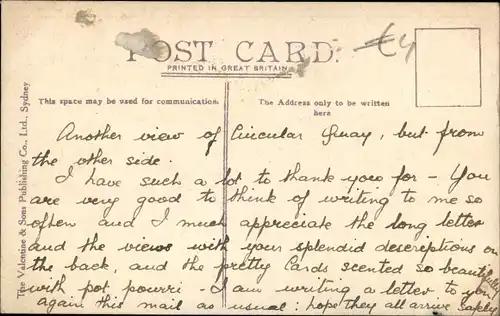 POST CARD.
€4
PRINTED IN GREAT BRITAIN
This space may be used for communication.
The Address only to be written
here
The Valentine & Sons Publishing Co., Ltd., Sydney
Another view of Circular Quay, but from
the other side.
I have such a lot to thank you for - You
are very good to think of writing to me so
often and I much appreciate the long letter
and the views with your splendid descreptions on
the back, and the pretty Cards scented so beautifully
with pot pourri - I am writing a letter to you
again this mail as usual: hope they all arrive safely